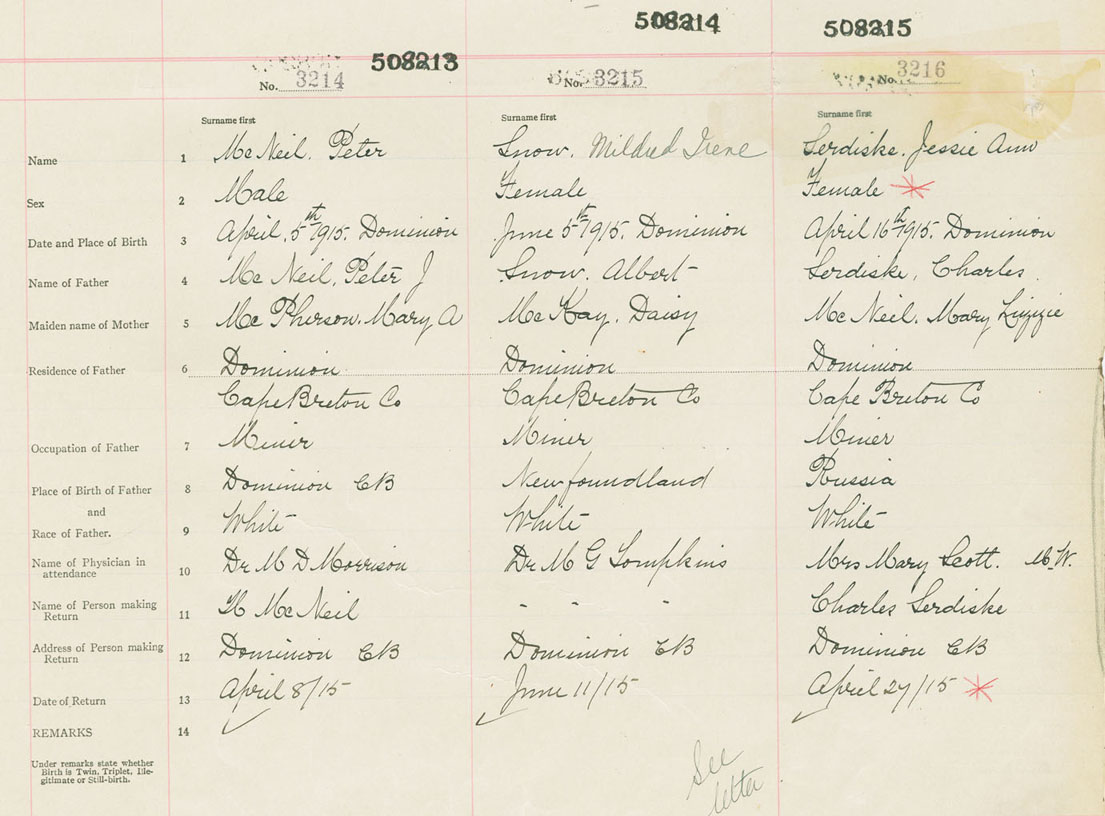 508213 508214 508215
No. 3214 No. 3215 No. 3216
Surname first Surname first Surname first
Name 1 McNeil, Peter Snow, Mildred Irene Serdiske, Jessie Ann
Sex 2 Male Female Female *
Date and Place of Birth 3 April, 5th 1915. Dominion June 5th 1915. Dominion April 16th 1915. Dominion
Name of Father 4 McNeil, Peter J Snow, Albert Serdiske, Charles
Maiden name of Mother 5 McPherson, Mary A McKay, Daisy McNeil, Mary Lizzie
Residence of Father 6 Dominion Dominion Dominion
Cape Breton Co Cape Breton Co Cape Breton Co
Occupation of Father 7 Miner Miner Miner
Place of Birth of Father 8 Dominion CB Newfoundland Russia
and
Race of Father. 9 White White White
Name of Physician in
attendance 10 Dr M D Morrison Dr M G Tompkins Mrs Mary Scott. M.W.
Name of Person making
Return 11 McNeil " " " Charles Serdiske
Address of Person making
Return 12 Dominion CB Dominion CB Dominion CB
Date of Return 13 April 8/15 June 11/15 April 27/15 *
REMARKS 14
Under remarks state whether
Birth is Twin, Triplet, Ille-
gitimate or Still-birth.
See
letter